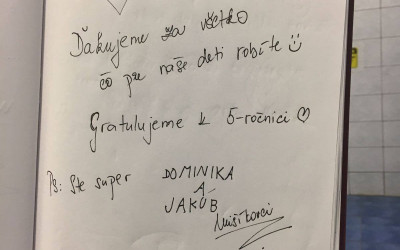 Ďakujeme za všetko
čo pre naše deti robíte
Gratulujeme k 5-ročnici
Ps: Ste super
DOMINIKA
A
JAKUB